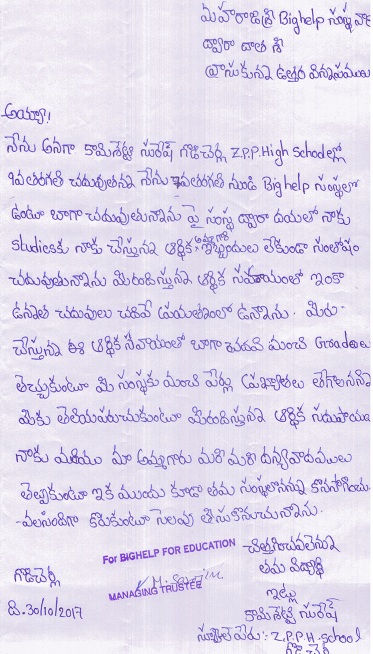 మహారాజశ్రీ Bighelp సంస్థ వారి
ద్వారా దాత శ్రీ
వ్రాసుకున్న ఉత్తర విన్నపములు
అయ్యా!
నేను అనగా కామిశెట్టి సురేష్ గొడిచెర్ల Z.P.P.High Schoolలో
10వతరగతి చదువుతున్న నేను 7వతరగతి నుండి Bighelp సంస్థలో
ఉంటూ బాగా చదువుతున్నాను పై సంస్థ ద్వారా దయతో నాకు
studiesకు నాకు చేస్తున్న ఆర్థిక ఇబ్బందులు లేకుండా సంతోషం
చదువుతున్నాను మీరందిస్తున్న ఆర్థిక సహాయంతో ఇంకా
ఉన్నత చదువులు చదివే ప్రయత్నంలో ఉన్నాను. మీరు
చేస్తున్న ఈ ఆర్థిక సహాయంతో బాగా చదివి మంచి Gradeలు
తెచ్చుకుంటూ మీ సంస్థకు మంచి పేరు ప్రఖ్యాతలు తేగలనని
మీకు తెలియపరుచుకుంటూ మీరందిస్తున్న ఆర్థిక సదుపాయం
నాకు మరియు మా అమ్మగారు మరి మరి ధన్యవాదములు
తెల్పుకుంటూ ఇక ముందు కూడా తమ సంస్థలో నన్ను కొనసాగించ
వలసిందిగా కోరుకుంటూ సెలవు తీసుకొనుచున్నాను.
For BIGHELP FOR EDUCATION
MANAGING TRUSTEE
చిత్తగించవలెను
తమ విద్యార్థి
గొడిచెర్ల
ఇట్లు
ది.30/10/2017
కామిశెట్టి సురేష్
స్కూల్ పేరు:- Z.P.P.H.school
గొడిచెర్ల